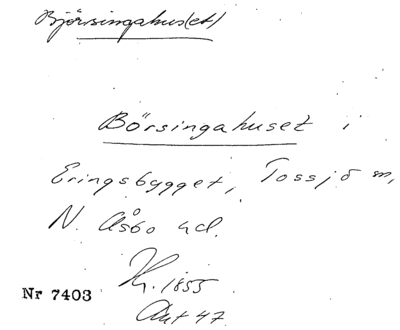 Björsingahus(et)
Börsingahuset i
Eringsbygget, Tossjö m,
N. Åsbo hd.
H. 1855
Nr 7403
Akt 47